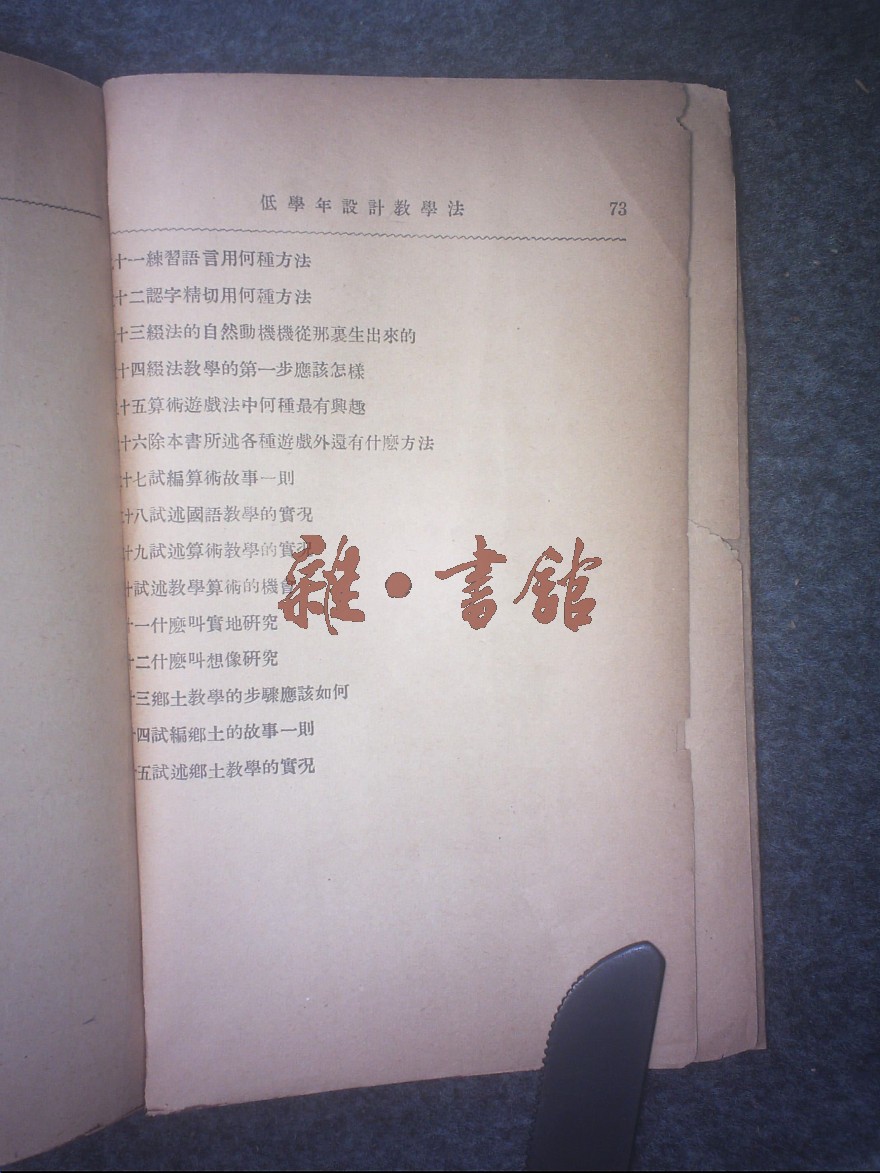 低學年設計教學法 73
十一練習語言用何種方法
十二認字精切用何種方法
十三綴法的自然動機機從那裏生出來的
十四綴法教學的第一步應該怎樣
十五算術遊戲法中何種最有興趣
十六除本書所述各種遊戲外還有什麽方法
十七試編算術故事一則
十八試述國語教學的實况
十九試述算術教學的實况
十試述教學算術的機會
十一什麽叫實地硏究
十二什麽叫想像硏究
十三鄉土教學的步驟應該如何
十四試編鄉土的故事一則
十五試述鄉土教學的實况
雜·書館